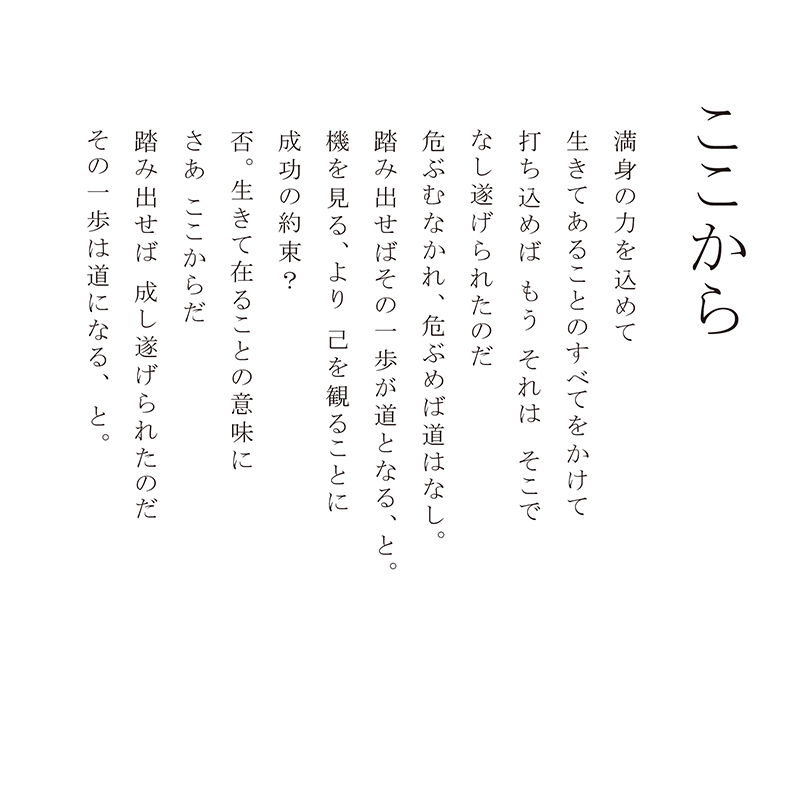 ここから
満身の力を込めて
生きてあることのすべてをかけて
打ち込めば もう それは そこで
なし遂げられたのだ
危ぶむなかれ、危ぶめば道はなし。
踏み出せばその一歩が道となる、と。
機を見る、より 己を観ることに
成功の約束？
否。生きて在ることの意味に
さあ ここからだ
踏み出せば 成し遂げられたのだ
その一歩は道になる、と。